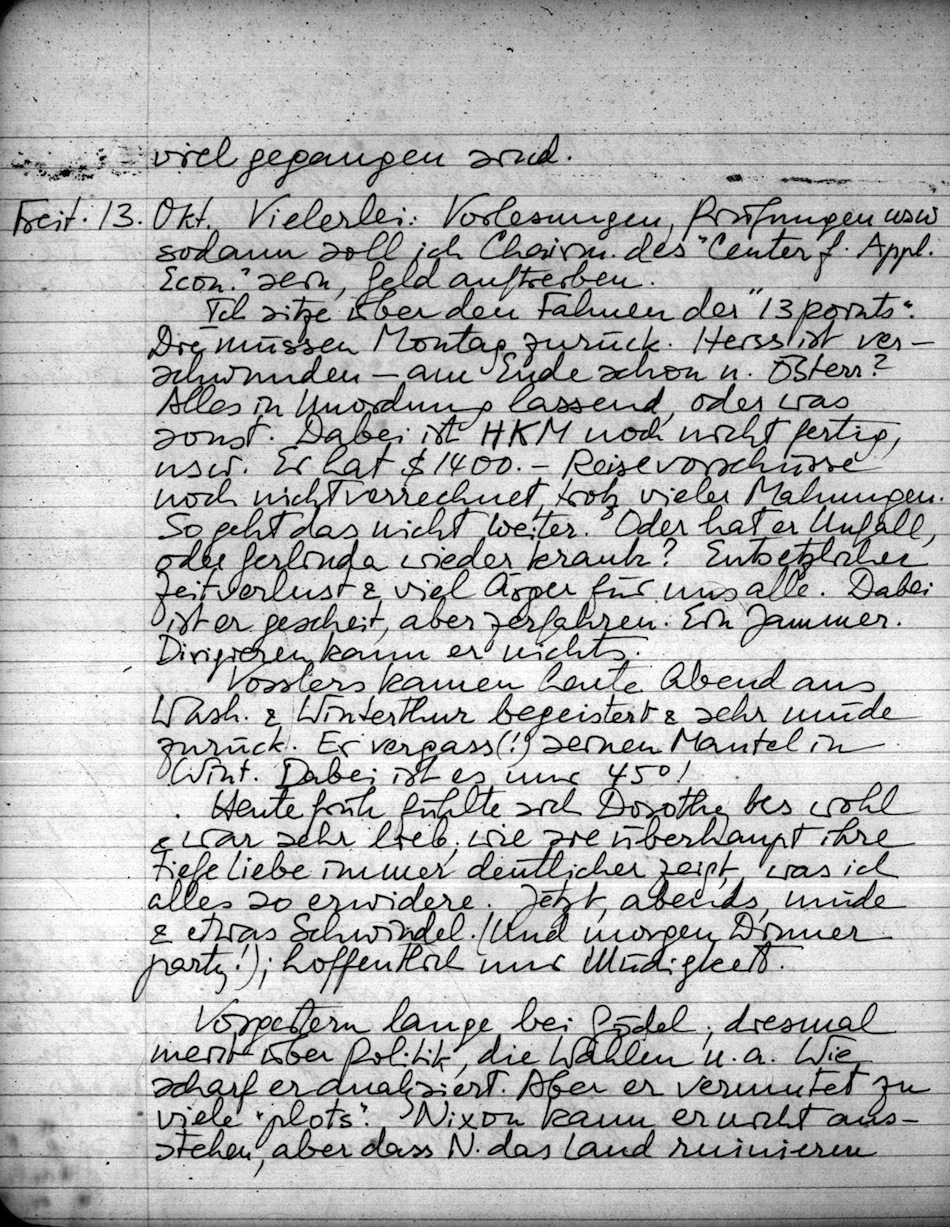 viel gegangen sind.
Freit. 13. Okt. Vielerlei: Vorlesungen, Prüfungen usw
sodann soll ich Chairm. des "Center f. Appl.
Econ." sein, Geld auftreiben.
Ich sitze über den Fahnen der "13 points".
Die müssen Montag zurück. Heiss ist ver-
schwunden – am Ende schon n. Österr?
Alles in Unordnung lassend, oder was
sonst. Dabei ist HKM noch nicht fertig,
usw. Er hat $ 1400.– Reisevorschüsse
noch nicht verrechnet, trotz vieler Mahnungen.
So geht das nicht weiter. Oder hat er Unfall,
oder Gerlinda wieder krank? Entsetzlicher
Zeitverlust & viel Ärger für uns alle. Dabei
ist er gescheit, aber zerfahren. Ein Jammer.
Dirigieren kann er nichts.
Vosslers kamen heute Abend aus
Wash. & Winterthur begeistert & sehr müde
zurück. Er vergass(!) seinen Mantel in
Wint. Dabei ist es nur 45°!
Heute früh fühlte sich Dorothy bes wohl
& war sehr lieb, wie sie überhaupt ihre
tiefe Liebe immer deutlicher zeigt, was ich
alles so erwidere. Jetzt, abends, müde
& etwas Schwindel. (Und morgen Dinner
party!); hoffentlich nur Müdigkeit.
Vorgestern lange bei Gödel, diesmal
meist über Politik, die Wahlen u.a. Wie
scharf er analysiert. Aber er vermutet zu
viele "plots". Nixon kann er nicht aus-
stehen, aber dass N. das Land ruinieren